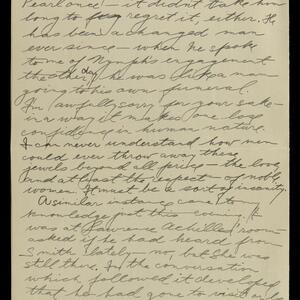 Pearl once! - it didn't take him
long to regret it, either. He
has been a changed man
ever since - when he spoke
to me of Nymph's engagement
the other day, he was like a man
going to his own funeral.
I'm awfully sorry for your sake -
in a way it makes one lose
confidence in human nature.
I can never understand how men
could ever throw away these
jewels beyond all price - the love
and at least the respect of noble
women. It must be a sort of insanity.
A similar instance came to
knowledge just this evening. I
was at Lawrence Achilles' room -
asked if he had heard from
Smith lately - no, but she was
still there. In the conversation
which followed it developed
that he had gone to visit